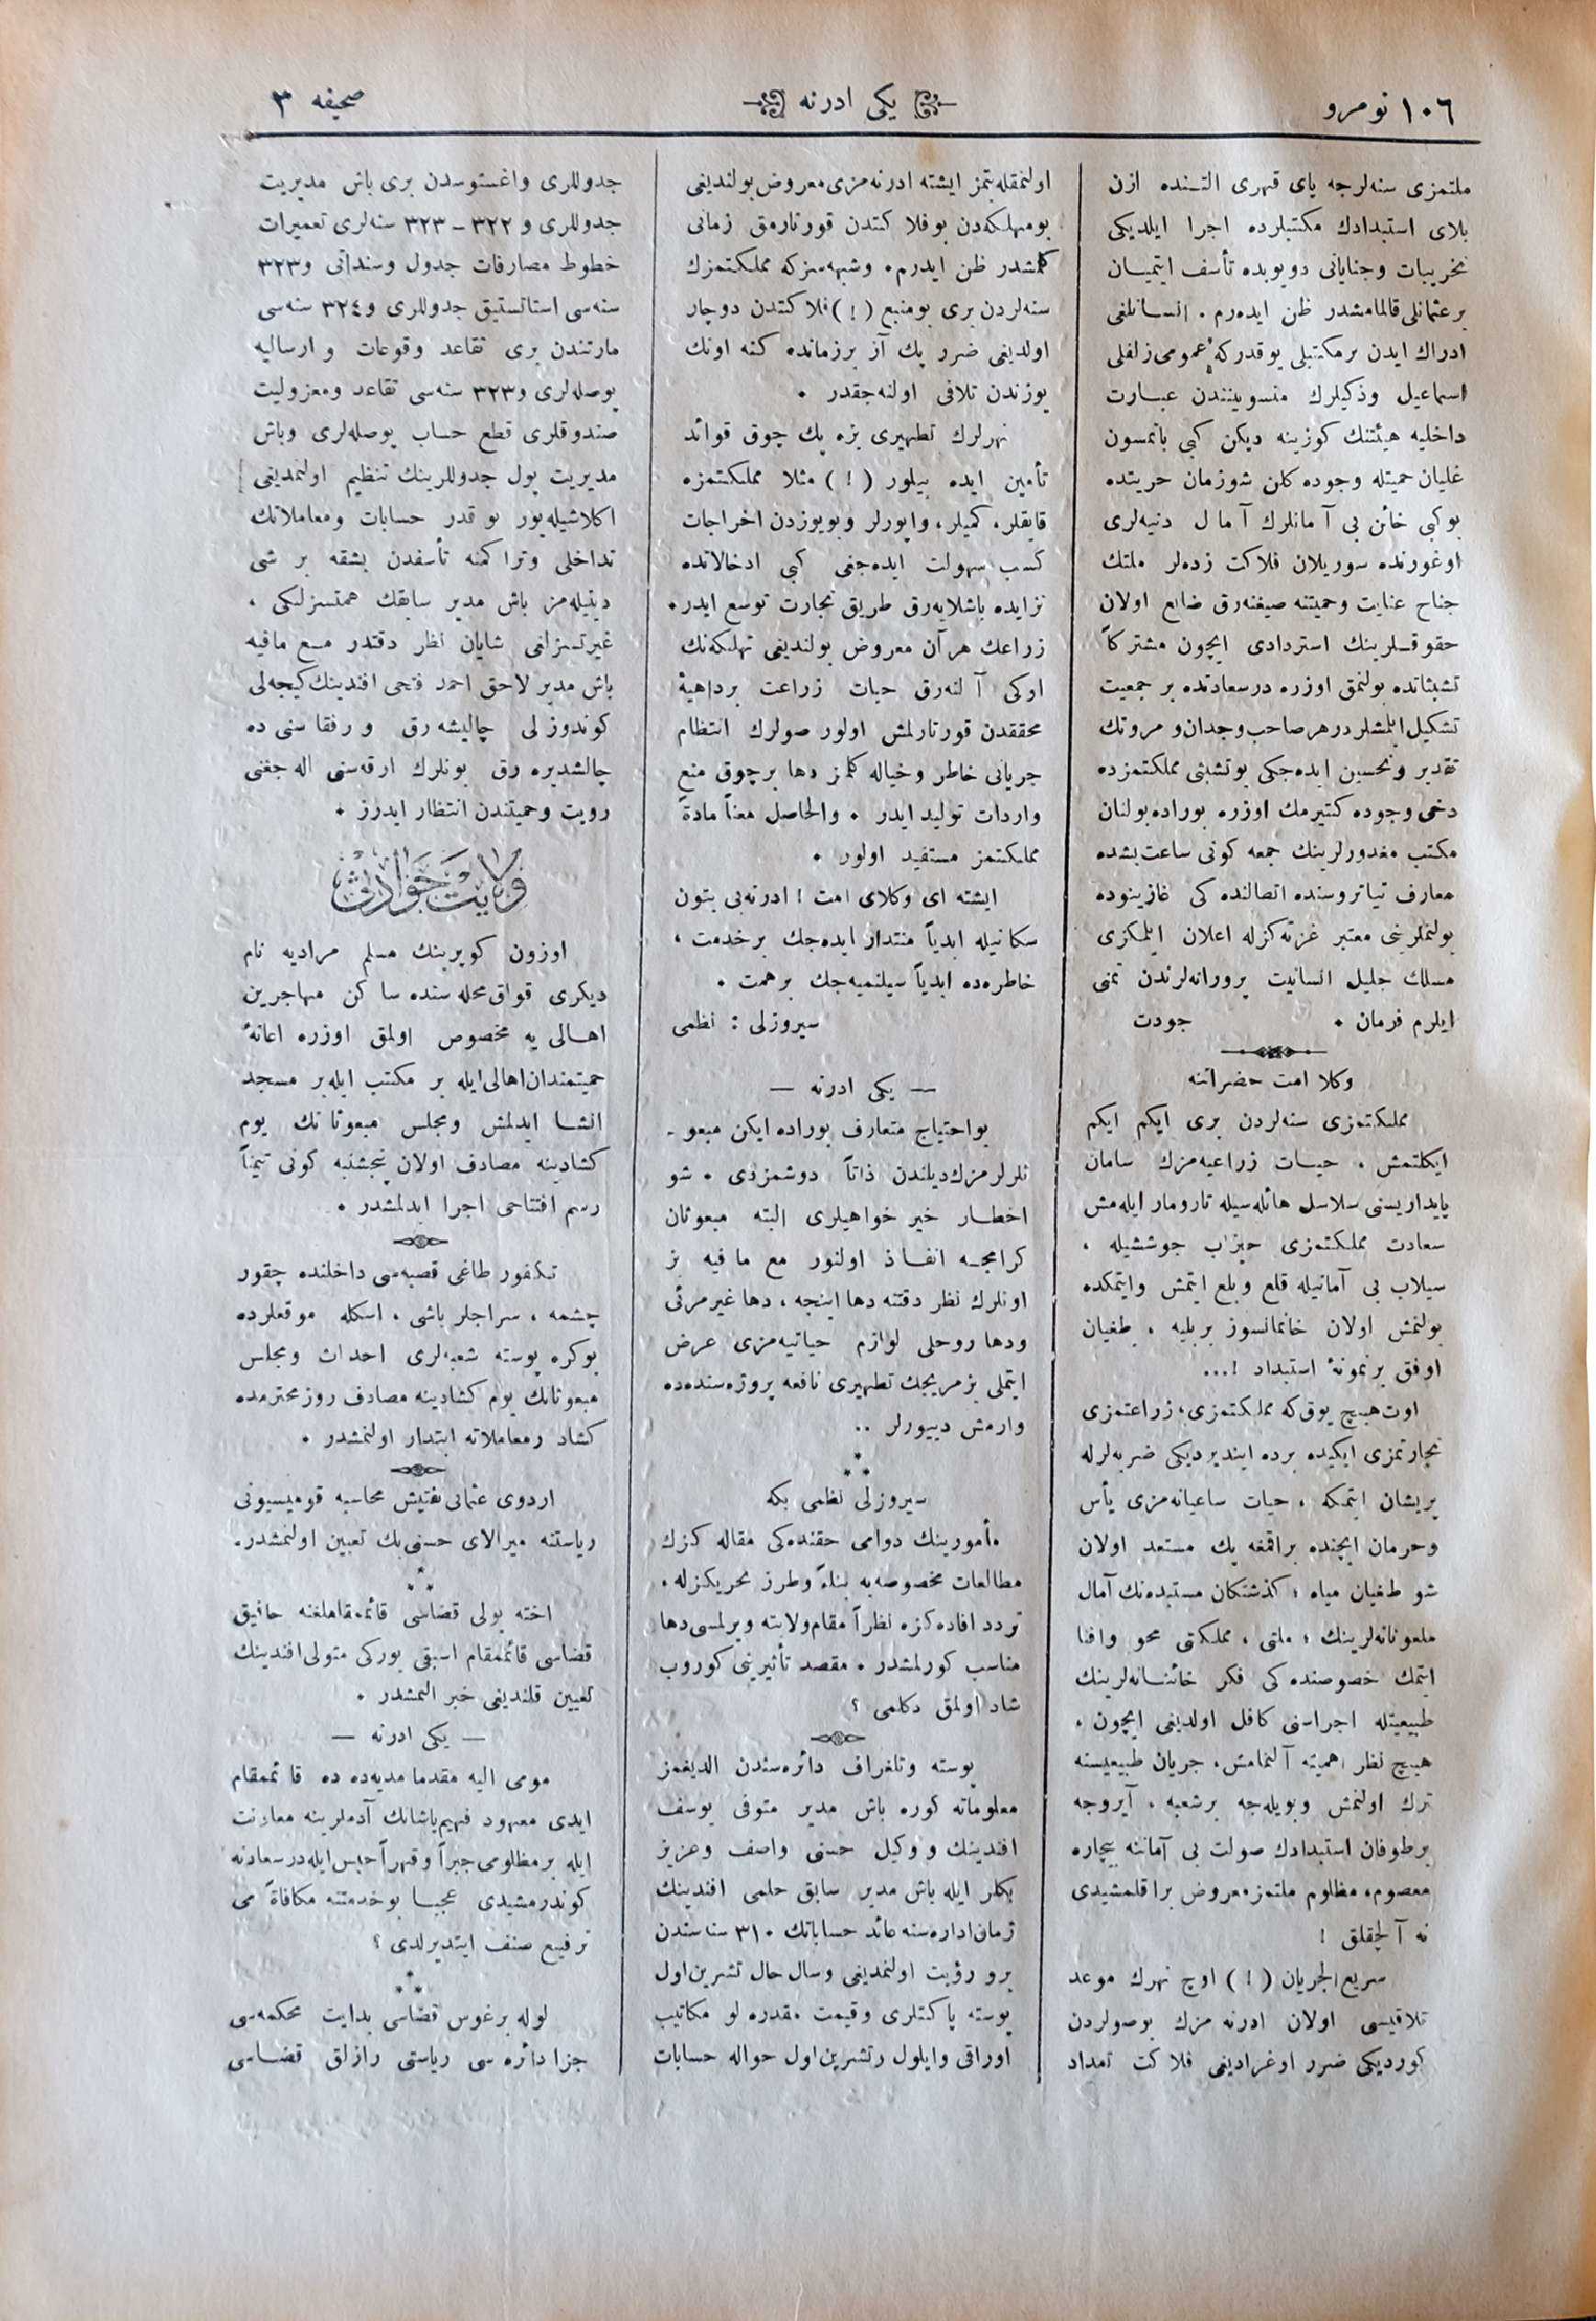 ١٠٦ نومرو
یکی ادرنه
صحیفه ٣
ملتمزی سنه‌لرجه پای قهری التنده ازن
بلای استبدادك مكتبلرده اجرا ایلدیكی
تخریبات وجنایاتی دویوبده تأسف ایتمیان
برعثمانلی قالمامشدر ظن ایده‌رم . انسانلغی
ادراك ایدن برمكتبلی یوقدركه عمومی زلفلی
اسماعیل وذكیلرك منسوبیتندن عبارت
داخلیه هیئتنك كوزینه دیكن كبی باتمسون
غلیان حمیتله وجوده كلن شوزمان حریتده
بوكبی خائن بی آمانلرك آمال دنیه‌لری
اوغورنده سوریلان فلاكت زده‌لر ملتك
جناح عنایت وحمیتنه صیغنه‌رق ضایع اولان
حقوقلرینك استردادی ایچون مشتركاً
تشبثاتده بولنمق اوزره درسعادتده بر جمعیت
تشكیل ایلمشلردر هر صاحب وجدان و مروتك
تقدیر وتحسین ایده‌جكی بوتشبثی مملكتمزده
دخی وجوده كتیرمك اوزره بوراده بولنان
مكتب مغدورلرینك جمعه كونی ساعت بشده
معارف تیاتروسنده اتصالنده كی غازینوده
بولنملرینی معتبر غزته‌كزله اعلان ایلمكزی
مسلك جلیل انسانیت پرورانه‌لرندن تمنی
ایلرم فرمان . جودت
وكلا امت حضراتنه
مملكتمزی سنه‌لردن بری ایكم ایكم
ایكلتمش ، حیات زراعیه‌مزك سامان
پایداریسنی سلاسل هائله‌سیله تارومار ایله‌مش
سعادت مملكتمزی جوششیله ،
سیلاب بی آمانیله قلع وبلع ایتمش وایتمكده
بولنمش اولان خانمانسوز بربلیه ، طغیان
اوفق برنمونهٔ استبداد !...
اوت هیچ یوق كه مملكتمزی ؛ زراعتمزی
تجارتمزی ایكیده برده ایندیردیكی ضربه‌لرله
پریشان ایتمكه ، حیات ساعیانه‌مزی یأس
وحرمان ایچنده براقمغه پك مستعد اولان
شو طغیان میاه ؛ كذشتكان مستبده‌نك آمال
ملعونانه‌لرینك ؛ ملتی ، مملكتی محو وافنا
ایتمك خصوصنده كی فكر خائنانه‌لرینك
طبیعیتله اجراسنی كافل اولدیغی ایچون .
هیچ نظر اهمیته آلنمامش، جریان طبیعیسنه
ترك اولنمش وبویله‌جه برشعبه ، آیروجه
برطوفان استبدادك صولت بی آماننه بیچاره
معصوم، مظلوم ملتمز معروض براقلمشیدی
نه آلچقلق !
سریع‌الجریان (!) اوچ نهرك موعد
تلاقیسی اولان ادرنه مزك بوصولردن
كوردیكی ضرر اوغرادیغی فلاكت تعداد
اولنمقله بتمز ایشته ادرنه‌مزی معروض بولندیغی
بومهلكه‌دن بوفلا كتدن قورتارمق زمانی
كلمشدر ظن ایدرم. وشبهه‌سزكه مملكتمزك
سنه‌لردن بری بومنبع (!) فلاكتدن دوچار
اولدیغی ضرر پك آز برزمانده كنه اونك
یوزندن تلافی اولنه‌جقدر .
نهرلرك تطهیری بزه پك چوق فوائد
تأمین ایده بیلور (!) مثلا مملكتمزه
قایقلر، كمیلر، واپورلر وبویوزدن اخراجات
كسب سهولت ایده‌جغی كبی ادخالاتده
تزایده باشلایه‌رق طریق تجارت توسع ایدر.
زراعك هرآن معروض بولندیغی تهلكه‌نك
اوكی آلنه‌رق حیات زراعت برداهیهٔ
محققدن قورتارلمش اولور صولرك انتظام
جریانی خاطر وخیاله كلمز دها برچوق منبع
واردات تولید ایدر . والحاصل معناً مادةً
مملكتمز مستفید اولور .
ایشته ای وكلای امت ! ادرنه‌یی بتون
سكانیله ابدیاً منتدار ایده‌جك برخدمت ،
خاطره‌ده ابدیاً سیلنمیه‌جك برهمت .
سیروزلی : نظمی
— یكی ادرنه —
بواحتیاج متعارف بوراده ایكن مبعو-
ثلرلرمزك‌دیلندن ذاتاً دوشمزدی . شو
اخطار خیر خواهیلری البته مبعوثان
كرامجه انفاذ اولنور مع ما فیه بز
اونلرك نظر دقتنه دها اینجه ، دها غیرمرئی
ودها روحلی لوازم حیاتیه‌مزی عرض
ایتملی یز مریجك تطهیری نافعه پروژه‌سنده‌ده
وارمش دییورلر ..
سیروزلی نظمی بكه
مأمورینك دوامی حقنده‌كی مقاله كزك
مطالعات مخصوصه‌یه بناءً وطرز تحریكزله .
تردد افاده‌كزه نظراً مقام‌ولایته ویرلمسی دها
مناسب كورلمشدر . مقصد تأثیرینی كوروب
شاد اولمق دكلمی ؟
پوسته وتلغراف دائره‌سندن الدیغمز
معلوماته كوره باش مدیر متوفی یوسف
افندینك و وكیل حسنی واصف وعزیز
بكلر ایله باش مدیر سابق حلمی افندینك
زمان‌اداره‌سنه عائد حساباتك ٣١٠ سنه سندن
برو رؤیت اولنمدیغی وسال حال تشرین‌اول
پوسته پا كتلری وقیمت مقدره لو مكاتیب
اوراقی وایلول وتشرین‌اول حواله حسابات
جدوللری واغستوسدن بری باش مدیریت
جدوللری و ٣٢٢ – ٣٢٣ سنه‌لری تعمیرات
خطوط مصارفات جدول وسنداتی و٣٢٣
سنه‌سی استاتستیق جدوللری و٣٢٤ سنه‌سی
مارتندن بری تقاعد وقوعات و ارسالیه
بوصله‌لری و٣٢٣ سنه‌سی تقاعد ومعزولیت
صندوقلری قطع حساب بوصله‌لری وباش
مدیریت پول جدوللرینك تنظیم اولنمدیغی
اكلاشیله‌یور بو قدر حسابات ومعاملاتك
تداخلی وتراكمنه تأسفدن بشقه بر شی
دینیله‌مز باش مدیر سابقك همتسزلكی ،
غیرتسزلغی شایان نظر دقتدر مع مافیه
باش مدیر لاحق احمد فتحی افندینك كیجه‌لی
كوندوزلی چالیشه‌رق و رفقا سنی ده
چالشدیره رق بونلرك ارقه‌سنی اله جغنی
رویت وحمیتندن انتظار ایدرز .
ولایت حوادثی
اوزون كوپرینك مسلم مرادیه نام
دیكری قواق محله سنده ساكن مهاجرین
اهالی یه مخصوص اولمق اوزره اعانهٔ
حمیتمندان‌اهالی‌ایله بر مكتب ایله‌بر مسجد
انشا ایدلمش ومجلس مبعوثانك یوم
كشادینه مصادف اولان پنجشنبه كونی تیمناً
رسم افتتاحی اجرا ایدلمشدر .
تكفور طاغی قصبه‌سی داخلنده چقور
چشمه ، سراجلر باشی ، اسكله موقعلرده
بوكره پوسته شعبه‌لری احداث ومجلس
مبعوثانك یوم كشادینه مصادف روز محترمده
كشاد ومعاملاته ابتدار اولنمشدر .
اردوی عثمانی تفتیش محاسبه قومیسیونی
ریاستنه میرالای حسنی بك تعیین اولنمشدر.
اخته بولی قضاسی قائمقاملغنه
قضاسی قائممقام اسبقی یوركی متولی افندینك
تعیین قلندیغی خبر النمشدر .
— یكی ادرنه —
مومی الیه مقدما مدیه‌ده ده قا ئممقام
ایدی معهود فهیم پاشانك آدملرینه معاونت
ایله برمظلومی جبراً وقهراً حبس ایله درسعادته
كوندرمشیدی عجبا بوخدمتنه مكافاةً می
ترفیع صنف ایتدیرلدی ؟
لوله برغوس قضاسی بدایت محكمه‌سی
جزا دائره سی ریاستی رازلق قضاسی